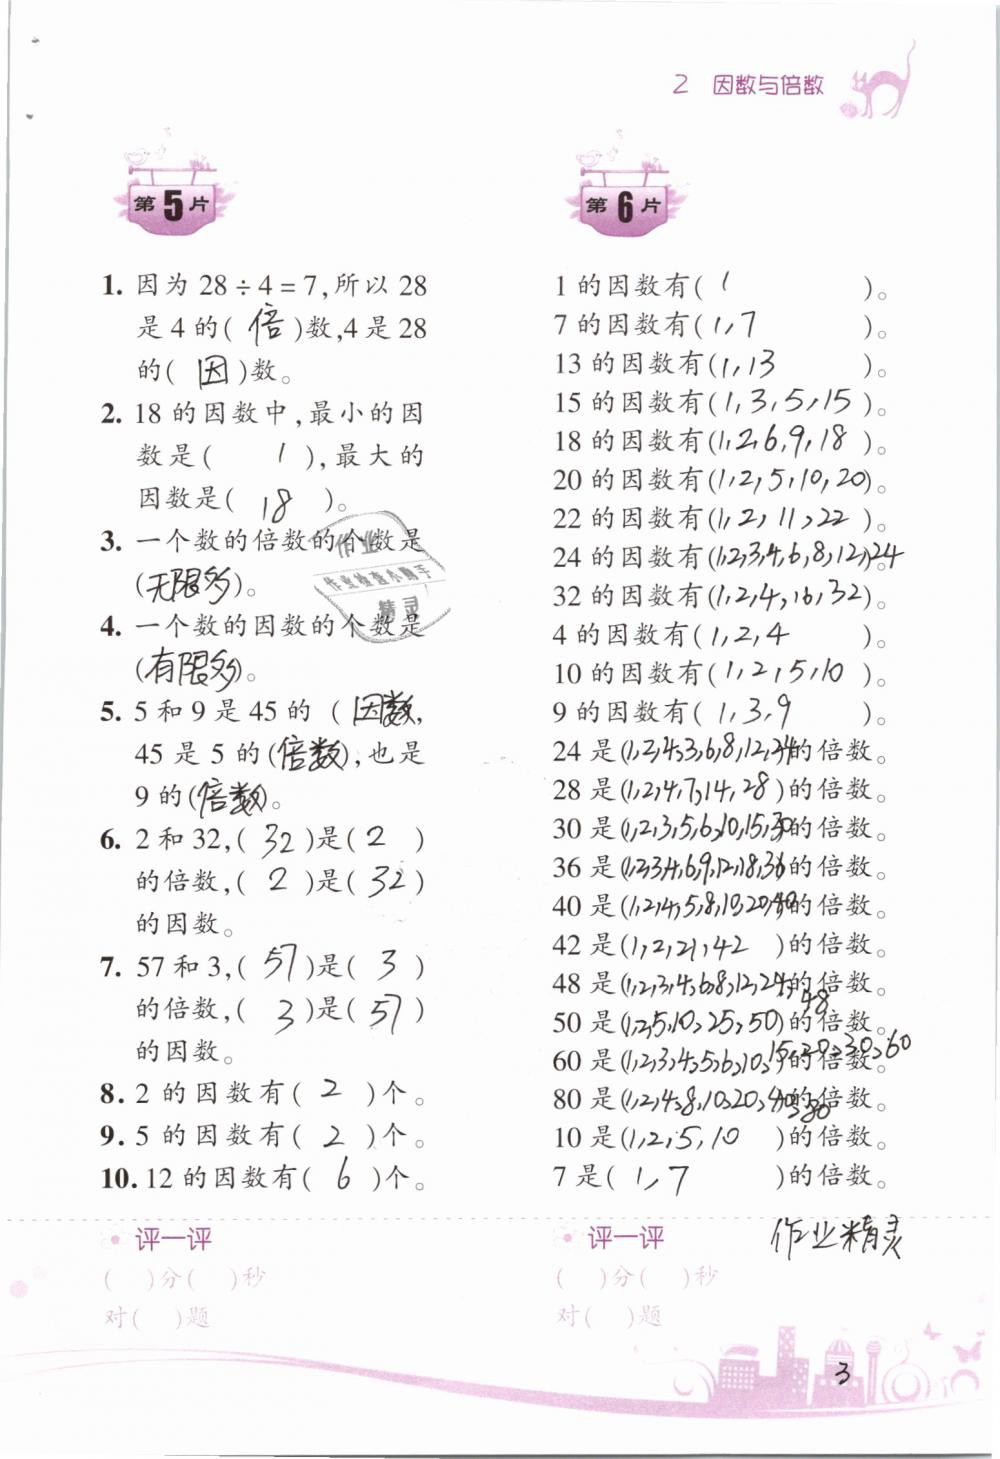 2 因数与倍数
第5片
1. 因为 28÷4=7,所以 28
是 4 的( 倍 )数,4 是 28
的( 因 )数。
2. 18 的因数中,最小的因
数是( 1 ),最大的
因数是( 18 )。
3. 一个数的倍数的个数是
(无限多)。
4. 一个数的因数的个数是
(有限多)。
5. 5 和 9 是 45 的 (因数,
45 是 5 的(倍数),也是
9 的(倍数)。
6. 2 和 32,( 32 )是( 2 )
的倍数,( 2 )是( 32 )
的因数。
7. 57 和 3,( 57 )是( 3 )
的倍数,( 3 )是( 57 )
的因数。
8. 2 的因数有( 2 )个。
9. 5 的因数有( 2 )个。
10. 12 的因数有( 6 )个。
评一评
( )分( )秒
对( )题
第6片
1 的因数有( 1 )。
7 的因数有( 1,7 )。
13 的因数有(1,13 )。
15 的因数有(1,3,5,15 )。
18 的因数有(1,2,6,9,18 )。
20 的因数有(1,2,5,10,20)。
22 的因数有(1,2,11,22 )。
24 的因数有(1,2,3,4,6,8,12,24
32 的因数有(1,2,4,16,32)。
4 的因数有( 1,2,4 )。
10 的因数有( 1,2,5,10 )。
9 的因数有( 1,3,9 )。
24 是(1,2,4,3,6,8,12,24的倍数。
28 是(1,2,4,7,14,28 )的倍数。
30 是(1,2,3,5,6,10,15,30的倍数。
36 是(1,2,3,4,6,9,12,18,36的倍数。
40 是(1,2,4,5,8,10,20,40的倍数。
42 是(1,2,21,42 )的倍数。
48 是(1,2,3,4,6,8,12,24,48的倍数。
50 是(1,2,5,10,25,50)的倍数。
60 是(1,2,3,4,5,6,10,15,20,30,60的倍数。
80 是(1,2,4,8,10,20,40,80的倍数。
10 是(1,2,5,10 )的倍数。
7 是( 1,7 )的倍数。
作业精灵
评一评
( )分( )秒
对( )题
作业
作业检查小助手
精灵
3